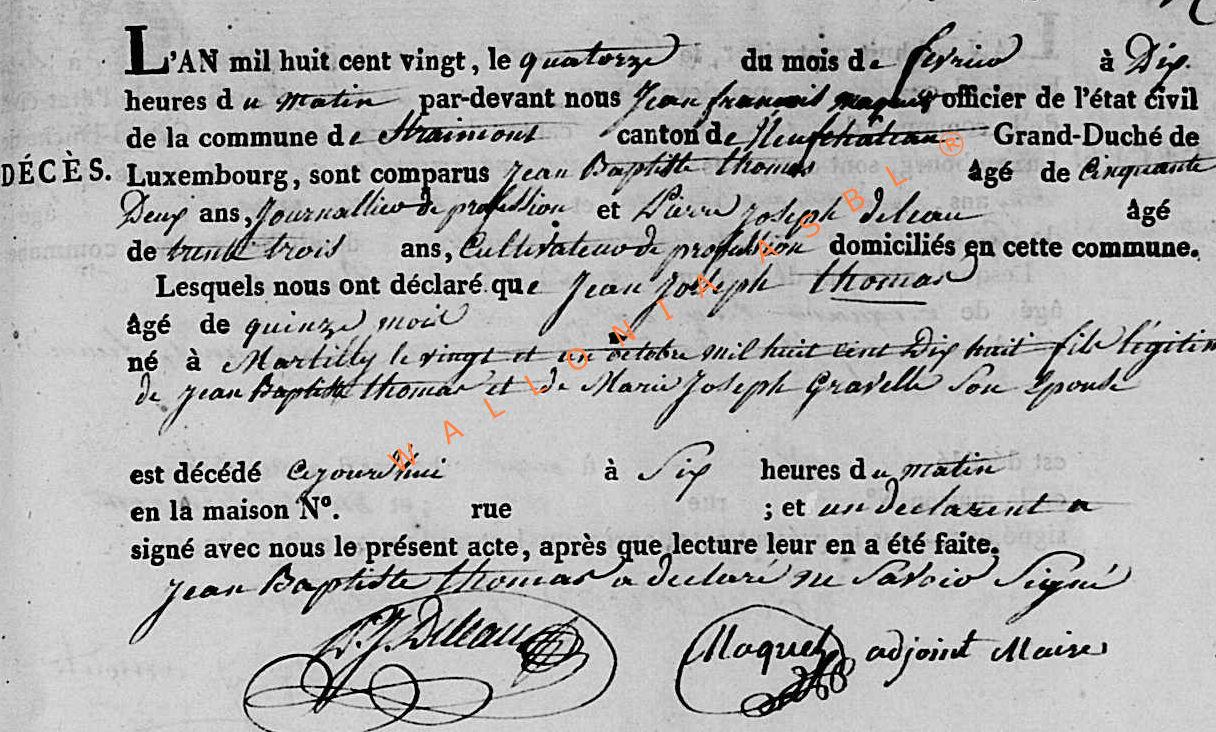 L'AN mil huit cent vingt, le quatorze du mois de fevrier à Dix
heures du matin par-devant nous Jean francois maquet officier de l'état civil
de la commune de Straimont canton de Neufchateau Grand-Duché de
DÉCÈS. Luxembourg, sont comparus Jean Baptiste thomas âgé de Cinquante
Deux ans, Journallier de profession et Pierre Joseph deleau âgé
de trente trois ans, Cultivateur de profession domiciliés en cette commune.
Lesquels nous ont déclaré que Jean Joseph thomas
âgé de quinze mois
né à Martilly le vingt et un octobre mil huit cent Dix huit fils légitim
de jean Baptiste thomas et de Marie Joseph Gravelle Son Epouse
est décédé cejourdhui à Six heures du matin
en la maison N°. rue ; et un declarent a
signé avec nous le présent acte, après que lecture leur en a été faite.
Jean Baptiste thomas a declaré ne Savoir Signé
P. J. Deleau Maquet adjoint Maire
WALLONIA ASBL ®